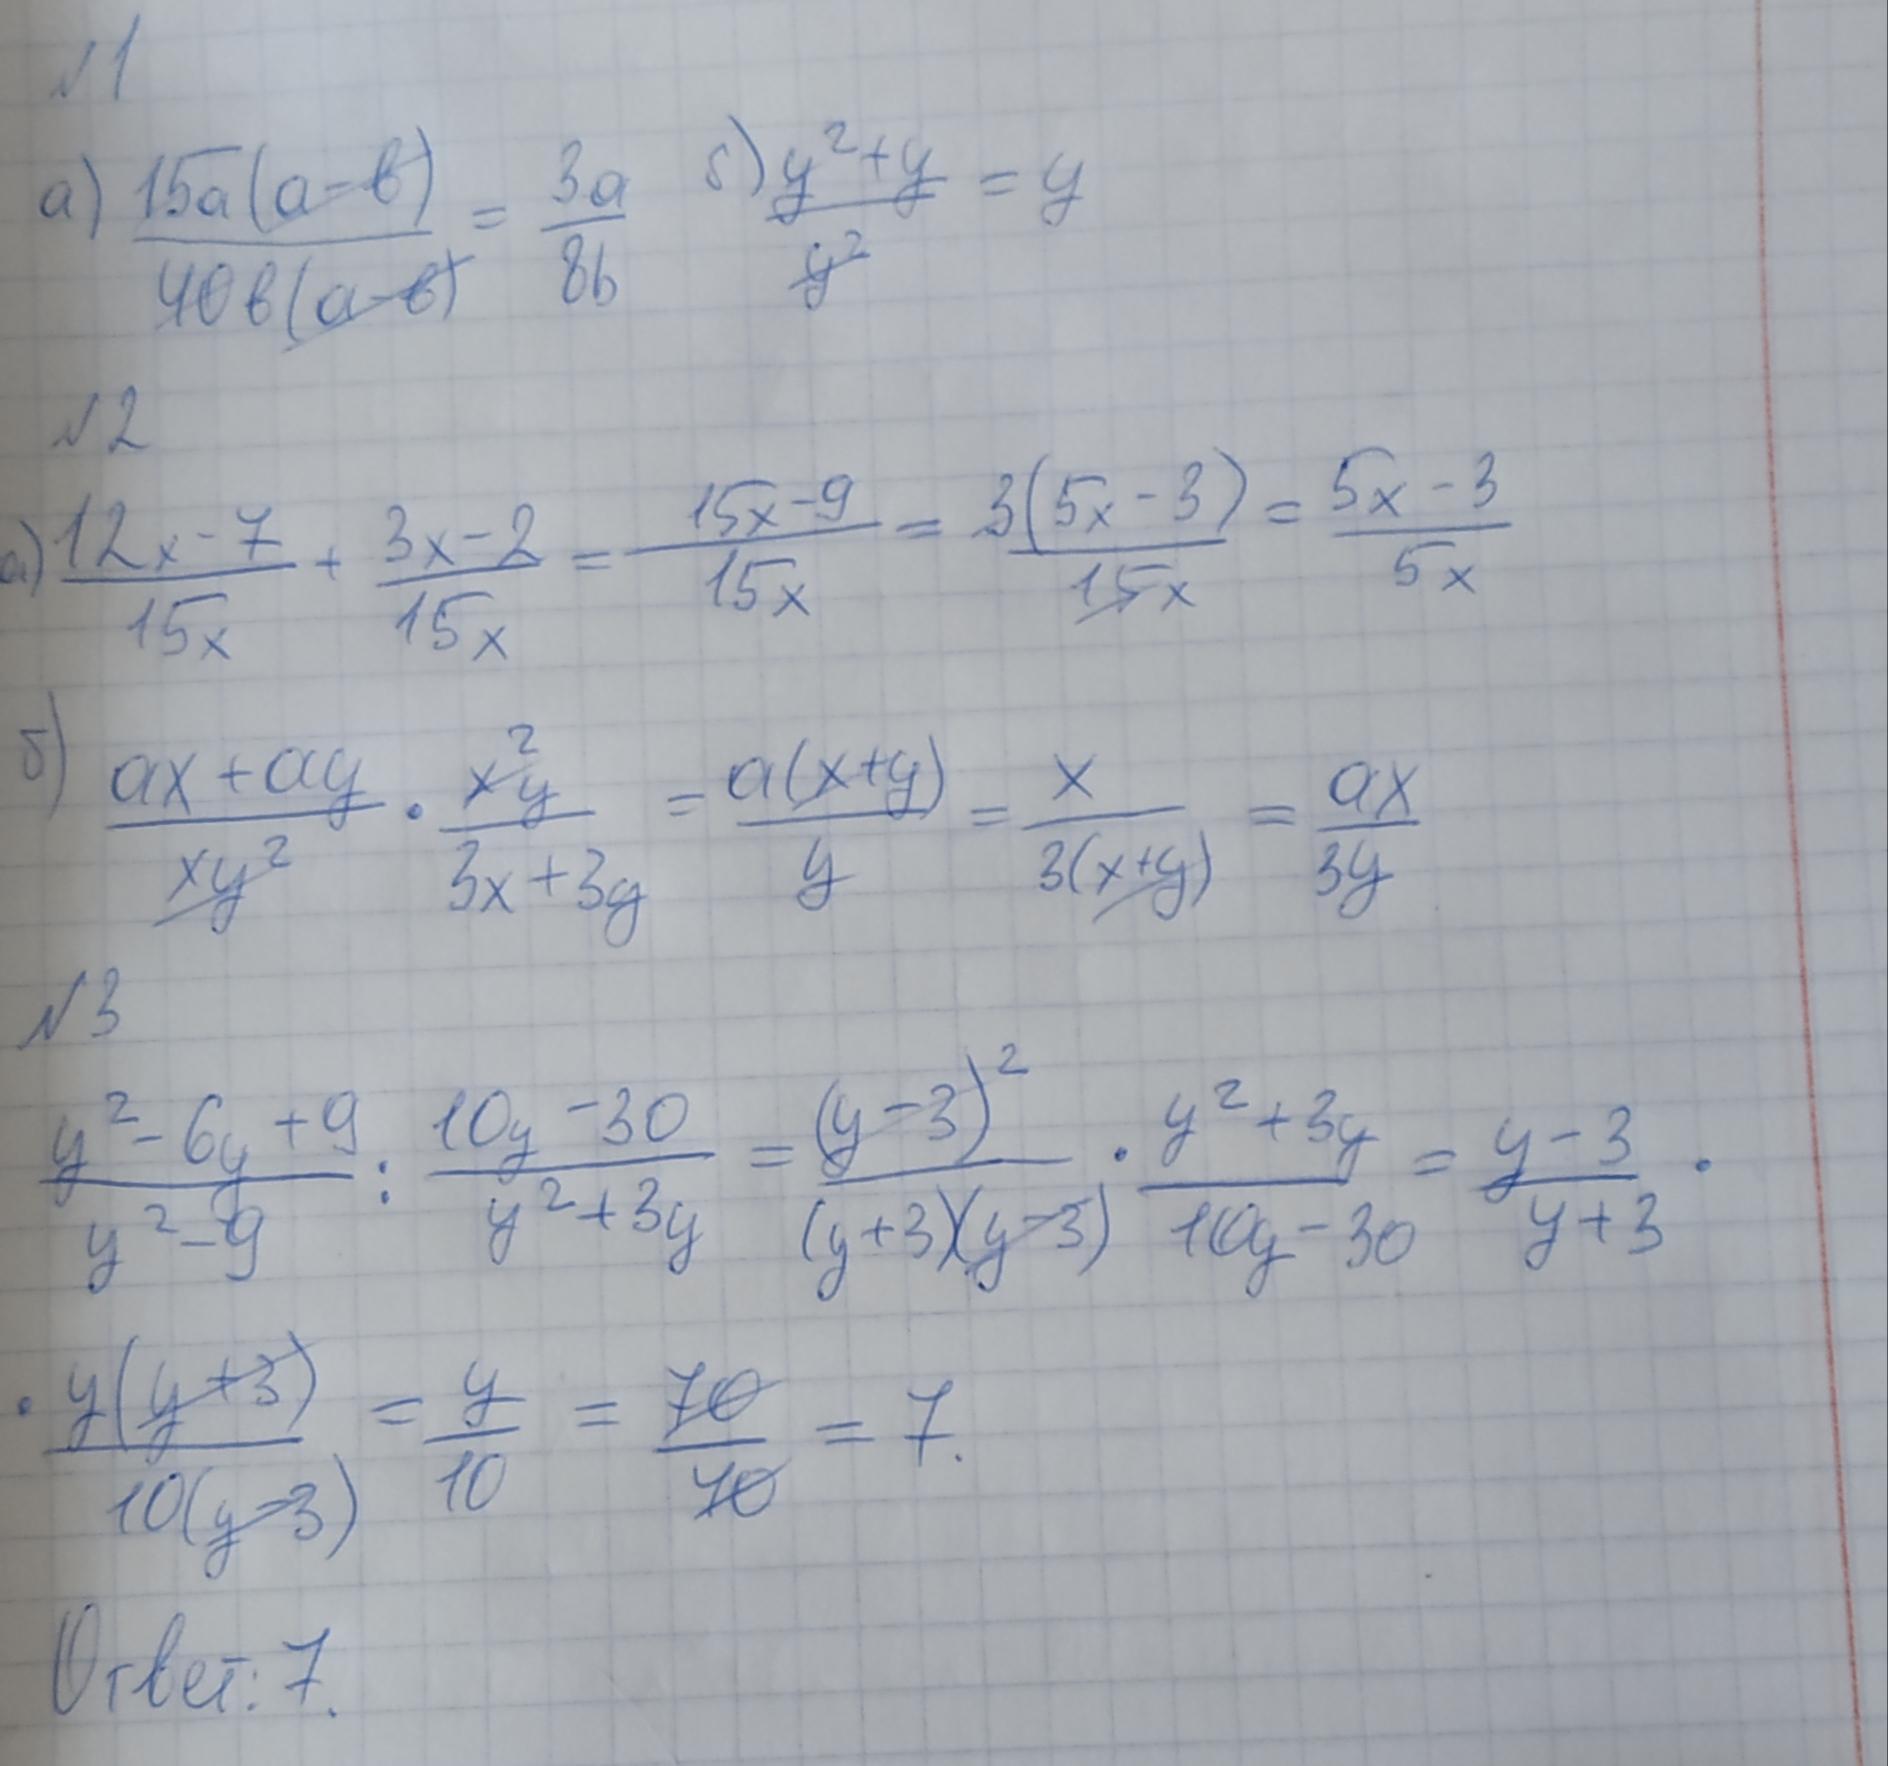 №1
а) 15a(a-b)/40b(a-b) = 3a/8b б) y²+y/y² = y
№2
а) 12x-7/15x + 3x-2/15x = 15x-9/15x = 3(5x-3)/15x = 5x-3/5x
б) ax+ay/xy² · x²y/3x+3y = a(x+y)/y = x/3(x+y) = ax/3y
№3
y²-6y+9/y²-9 : 10y-30/y²+3y = (y-3)²/(y+3)(y-3) · y²+3y/10y-30 = y-3/y+3 ·
· y(y+3)/10(y-3) = y/10 = 70/10 = 7.
Ответ: 7.